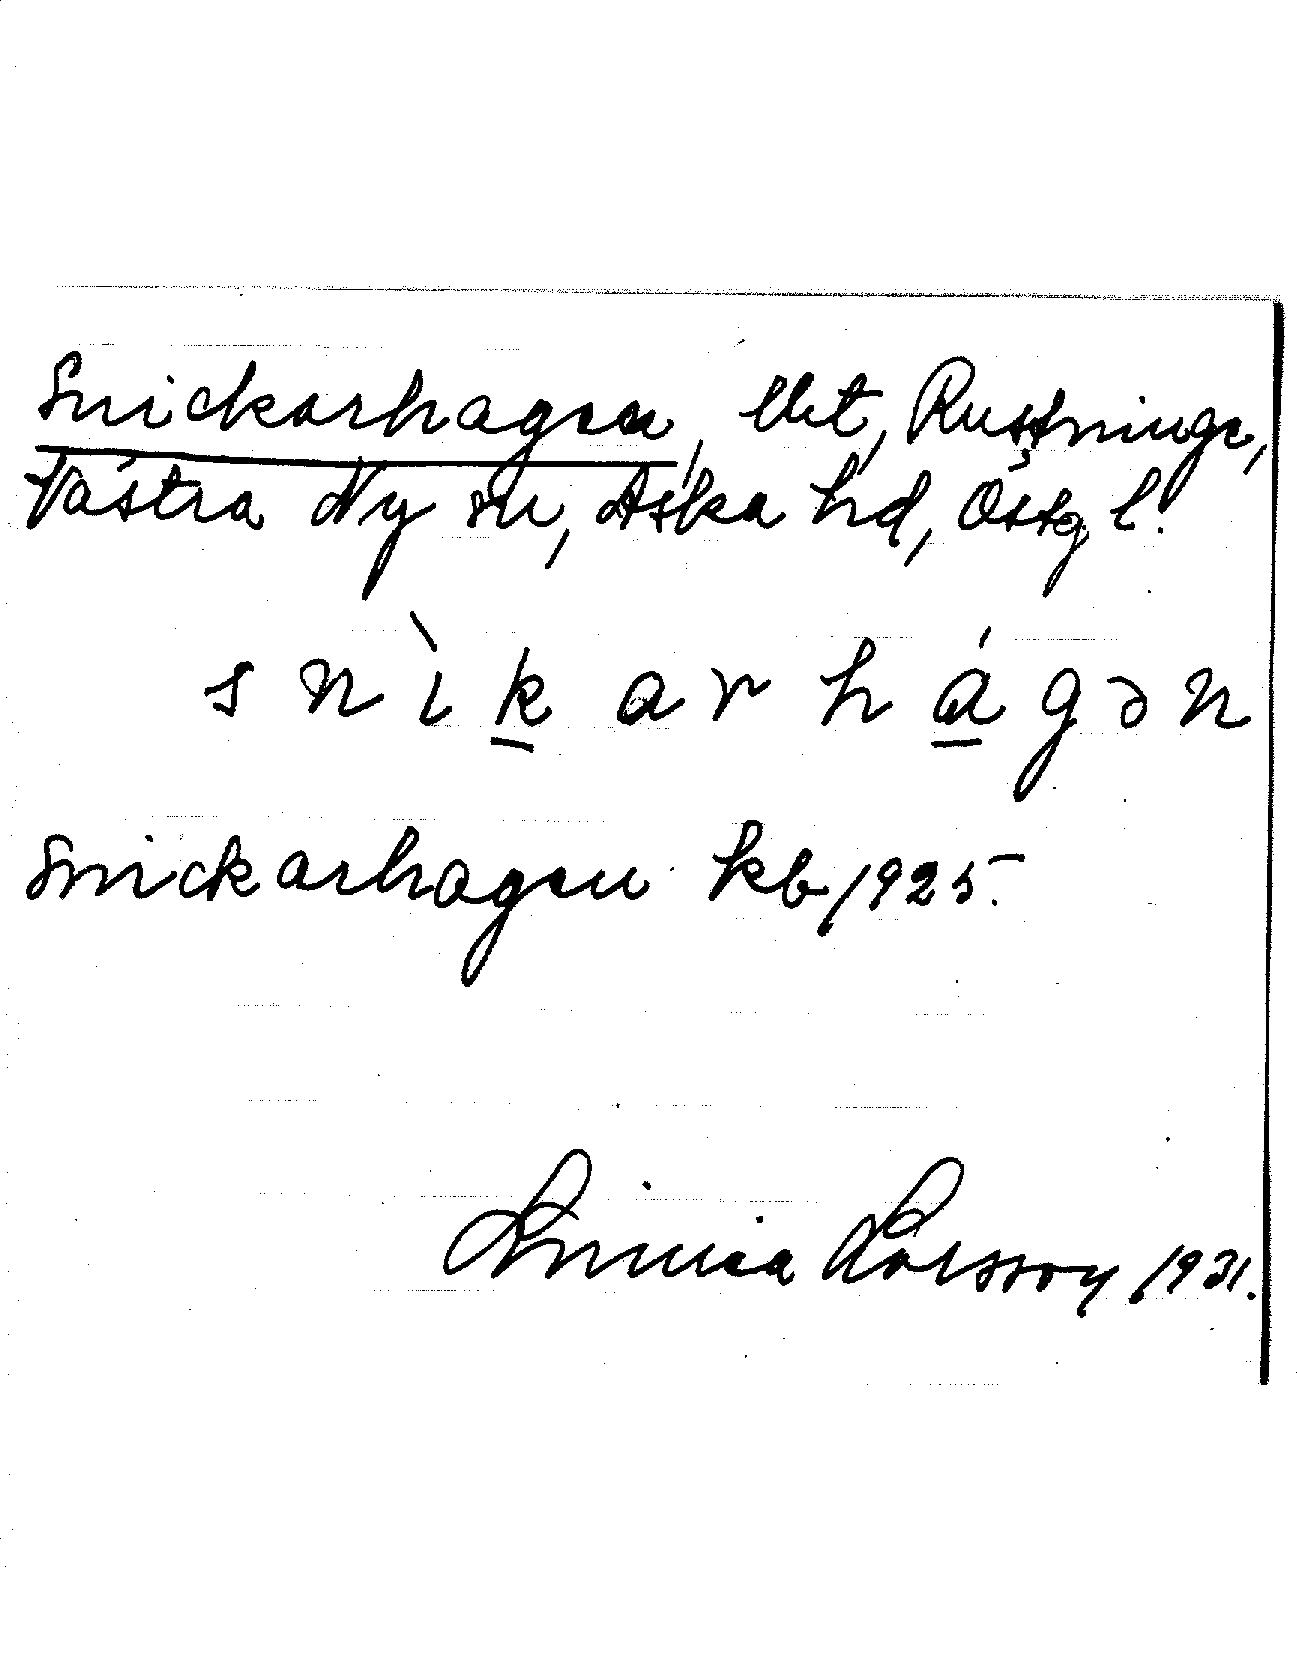 Snickarhagen, lht, Rustninge,
Västra Ny sn, Aska hd, Östg l.
s n ì k a r h á g ə n
Snickarhagen kb/1925.
Linnea Larsson /1931.